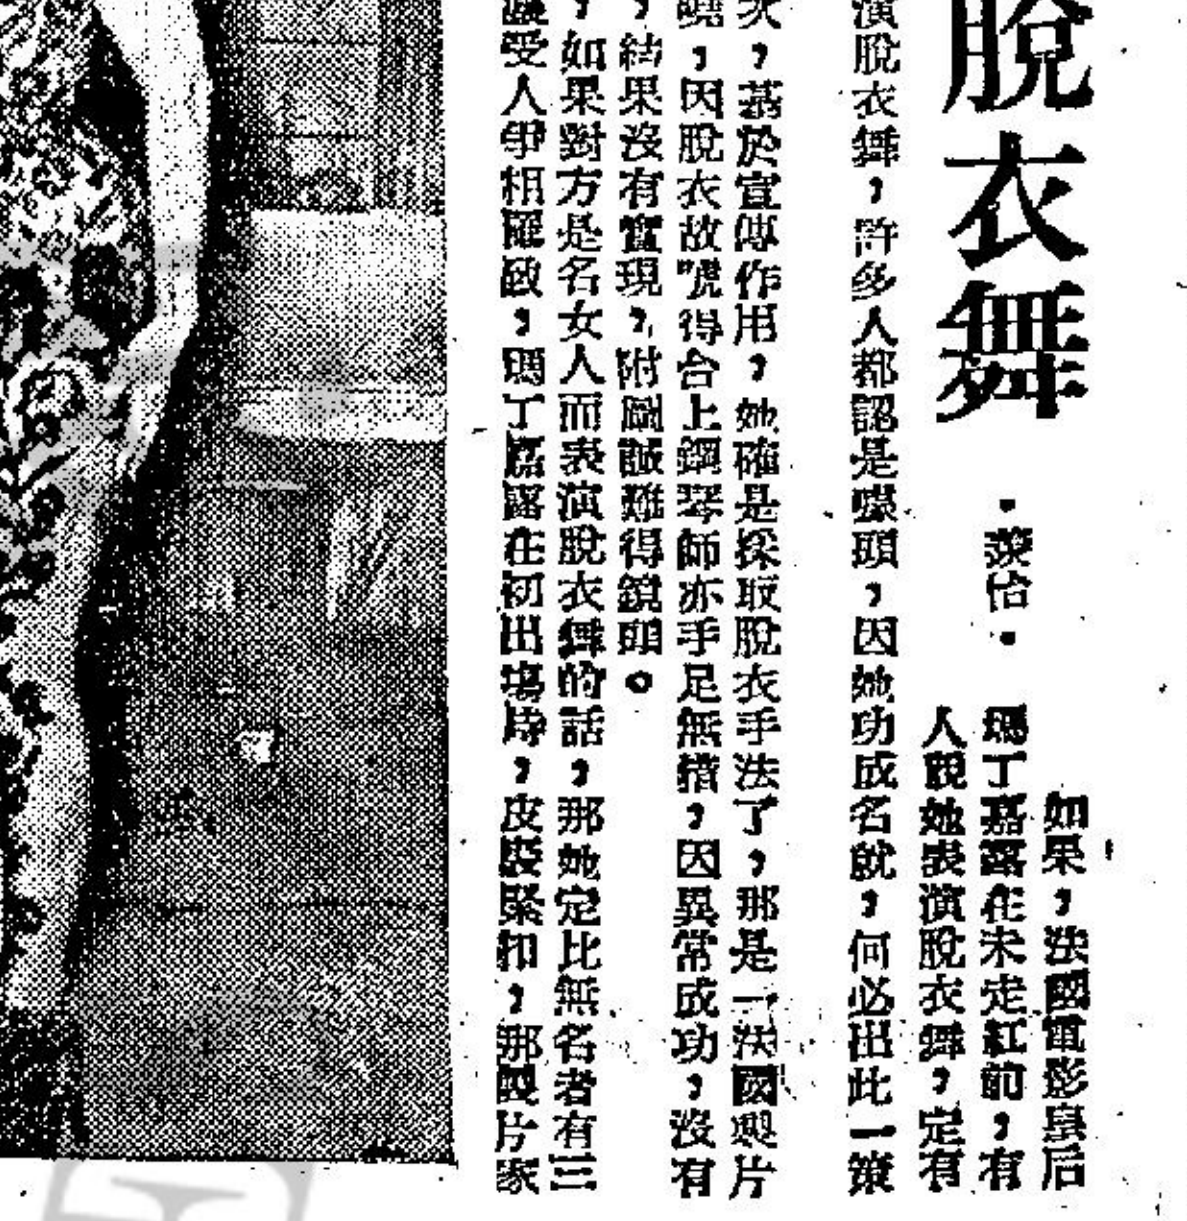 脫衣舞
·羨怡·
如果，法國電影皇后
瑪丁嘉露在未走紅前，有
人說她表演脫衣舞，定有
演脫衣舞，許多人都認是噱頭，因她功成名就，何必出此一策
次，基於宣傳作用，她確是採取脫衣手法了，那是一法國與片
曉，因脫衣故號得合上鋼琴師亦手足無措，因異常成功，沒有
，結果沒有實現，附圖誠難得鏡頭。
，如果對方是名女人而表演脫衣舞的話，那她定比無名者有三
受人爭相羅致，瑪丁嘉露在初出場時，皮裘緊扣，那製片家